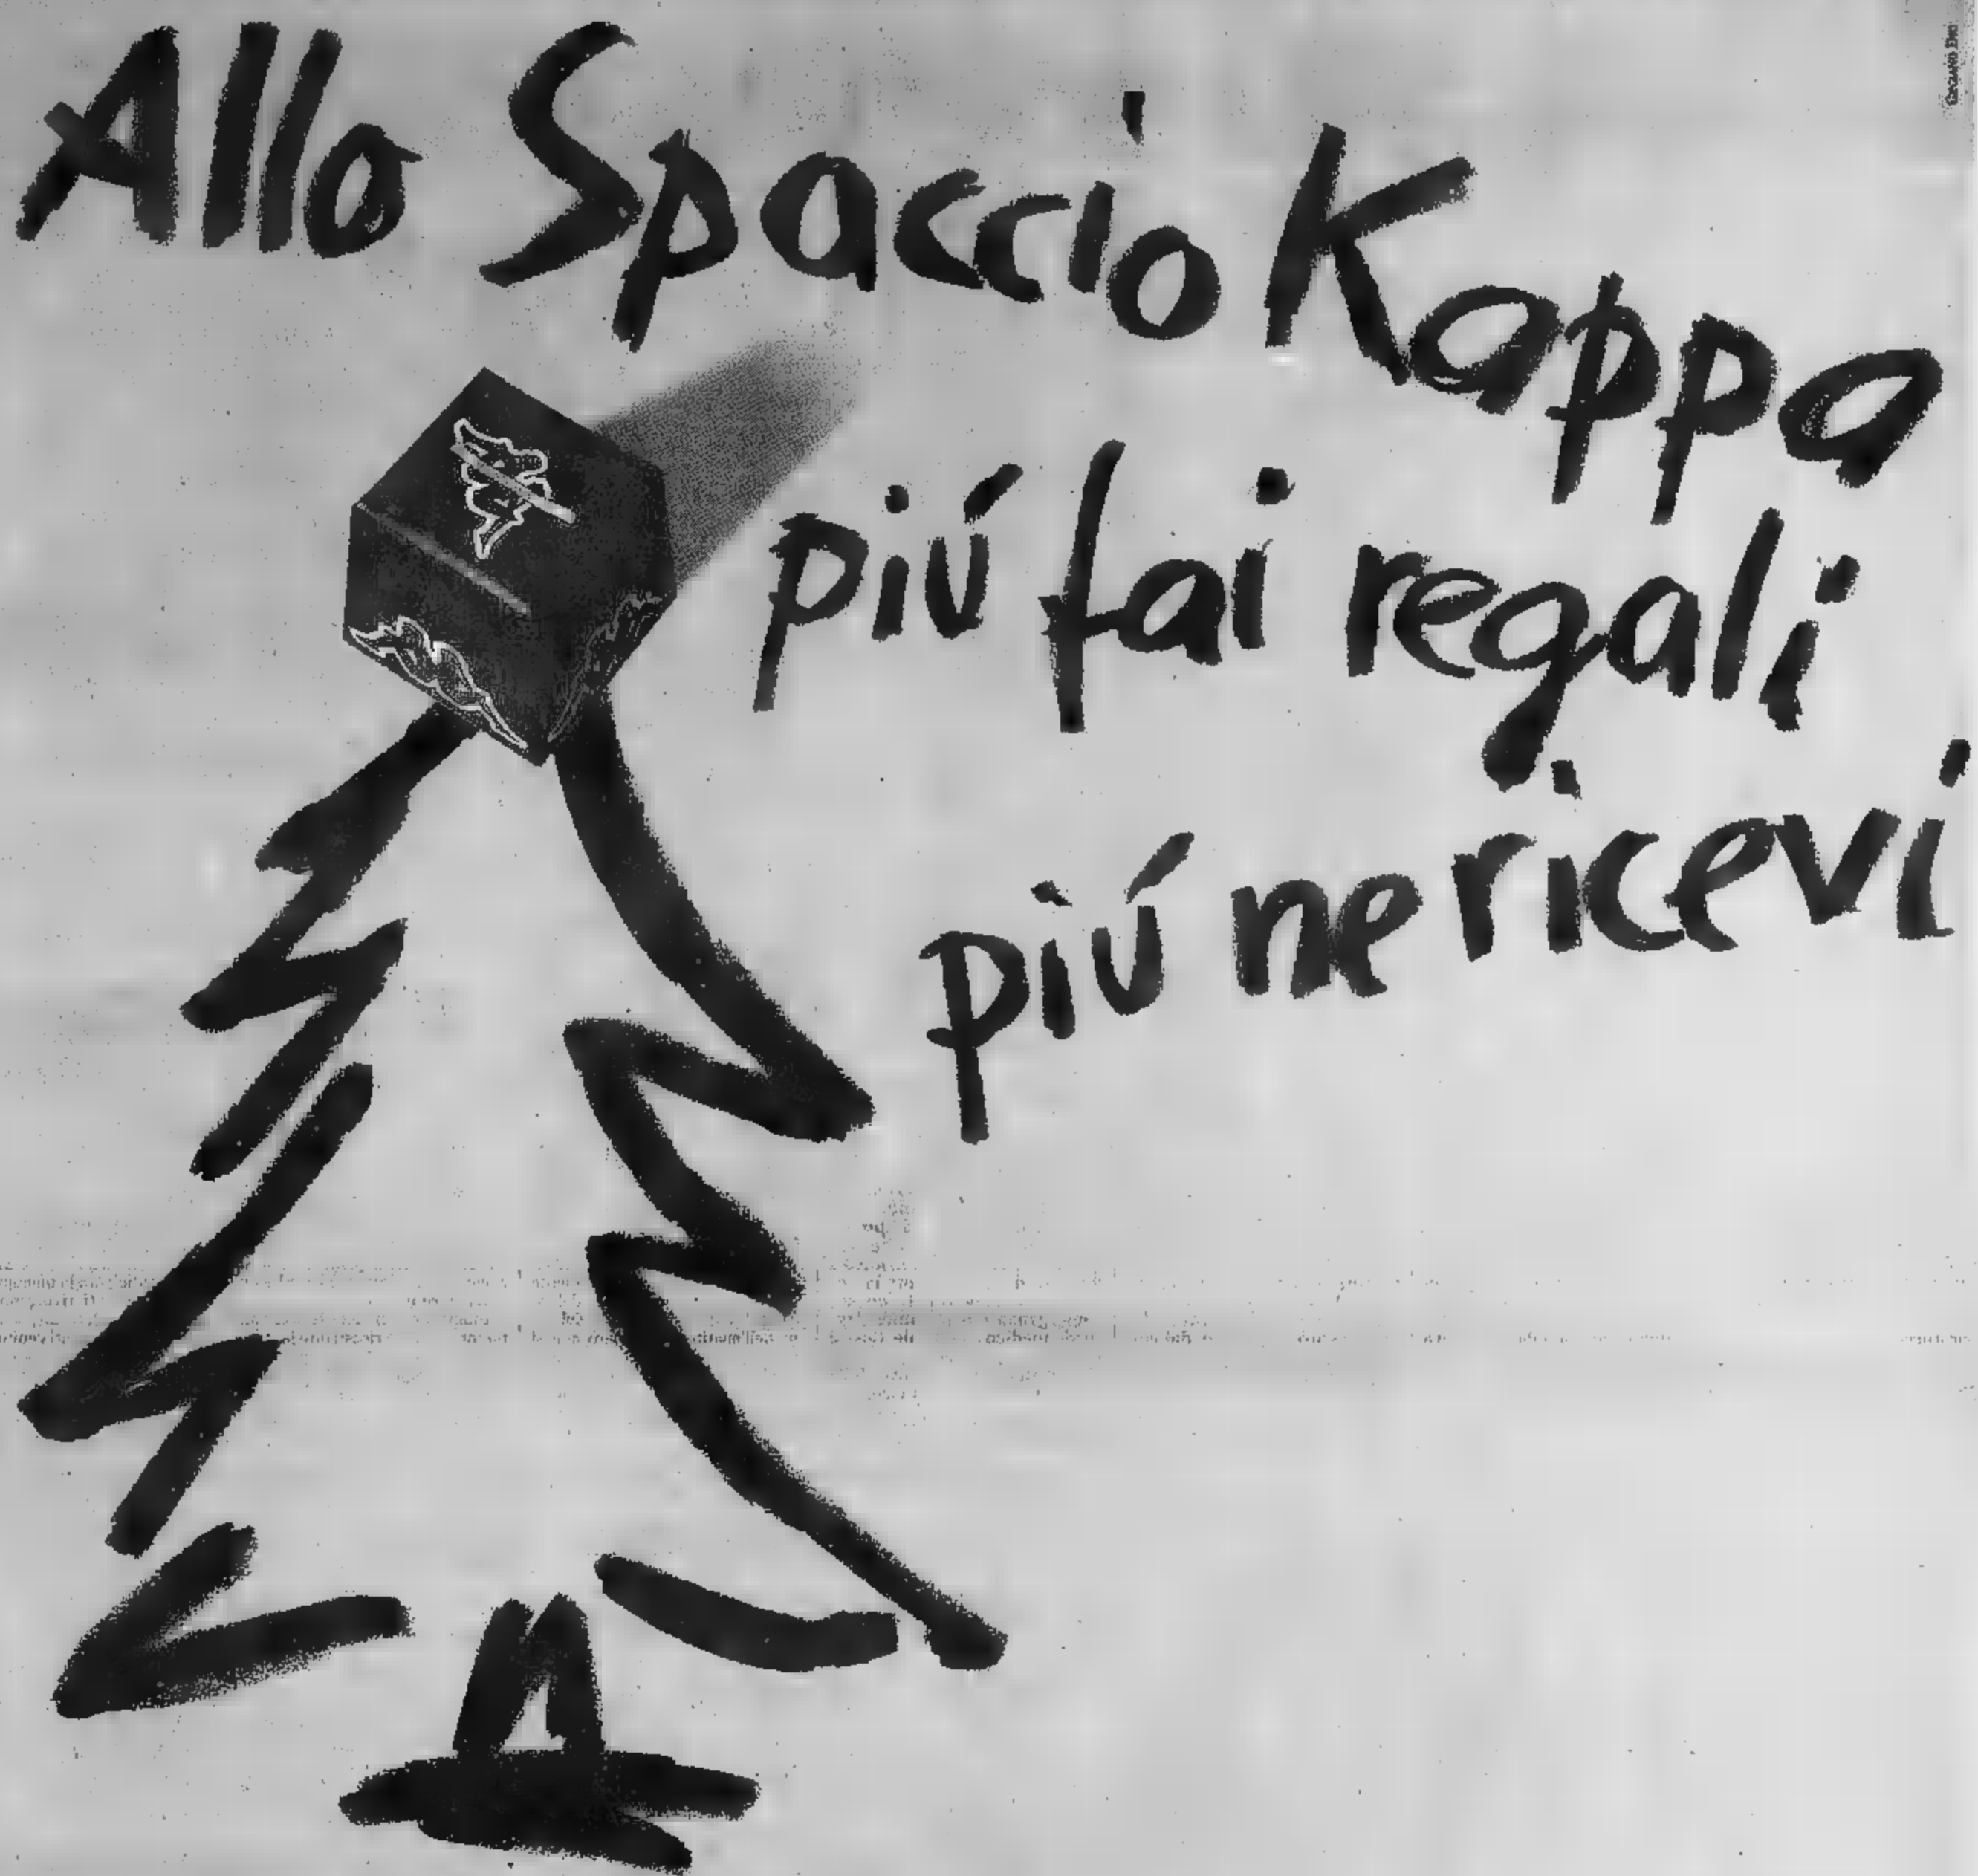 Allo Spaccio Kappa
piú fai regali
piú ne ricevi